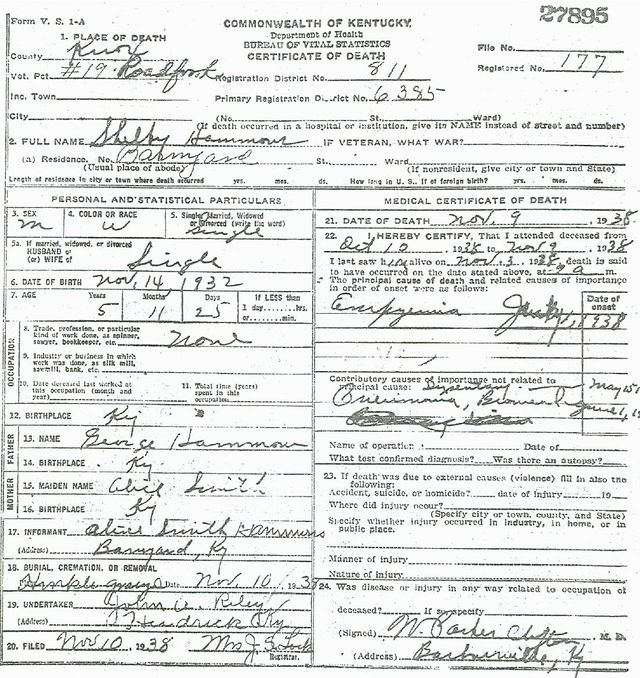 Form V. S. 1-A
27895
COMMONWEALTH OF KENTUCKY
Department of Health
BUREAU OF VITAL STATISTICS
CERTIFICATE OF DEATH
1. PLACE OF DEATH
County Knox
File No.
Vot. Pct #19 Roadfork Registration District No. 811
Registered No. 177
Inc. Town Primary Registration District No. 6385
City (No. St., Ward)
(If death occurred in a hospital or institution, give its NAME instead of street and number)
2. FULL NAME Shelby Hammons IF VETERAN, WHAT WAR?
(a) Residence. No. Barnyard St., Ward
(Usual place of abode) (If nonresident, give city or town and State)
Length of residence in city or town where death occurred yrs. mos. ds. How long in U. S., if of foreign birth? yrs. mos. ds.
PERSONAL AND STATISTICAL PARTICULARS
3. SEX 4. COLOR OR RACE 5. Single, Married, Widowed
or Divorced (write the word)
m w Single
5a. If married, widowed, or divorced
HUSBAND of
(or) WIFE of Single
6. DATE OF BIRTH Nov. 14, 1932
7. AGE Years Months Days If LESS than
1 day......hrs.
or......min.
5 11 25
OCCUPATION
8. Trade, profession, or particular
kind of work done, as spinner,
sawyer, bookkeeper, etc. None
9. Industry or business in which
work was done, as silk mill,
sawmill, bank, etc.
10. Date deceased last worked at
this occupation (month and
year)
11. Total time (years)
spent in this
occupation
12. BIRTHPLACE Ky
FATHER
13. NAME George Hammons
14. BIRTHPLACE Ky
MOTHER
15. MAIDEN NAME Alice Smith
16. BIRTHPLACE Ky
17. INFORMANT Alice Smith Hammons
(Address) Barnyard, Ky
18. BURIAL, CREMATION, OR REMOVAL
Hinkle Date Nov 10, 1938
19. UNDERTAKER John A. Riley
(Address) Ky
20. FILED Nov 10, 1938 Mrs J. S. Lock
Registrar.
MEDICAL CERTIFICATE OF DEATH
21. DATE OF DEATH Nov. 9, 1938
22. I HEREBY CERTIFY, That I attended deceased from
Oct 10, 1938 to Nov 9, 1938
I last saw him alive on Nov. 3, 1938, death is said
to have occurred on the date stated above, at 9 a m.
The principal cause of death and related causes of importance
in order of onset were as follows:
Date of
onset
Empyemia July 1, 1938
Contributory causes of importance not related to
principal cause: Dysentery May 15
Pneumonia, Bronchial June 1, 19
Name of operation Date of
What test confirmed diagnosis? Was there an autopsy?
23. If death was due to external causes (violence) fill in also the
following:
Accident, suicide, or homicide? date of injury 19
Where did injury occur?
(Specify city or town, county, and State)
Specify whether injury occurred in industry, in home, or in
public place.
Manner of injury
Nature of injury
24. Was disease or injury in any way related to occupation of
deceased? If so specify
(Signed) W. Parker Clifton M. D.
(Address) Barbourville, Ky